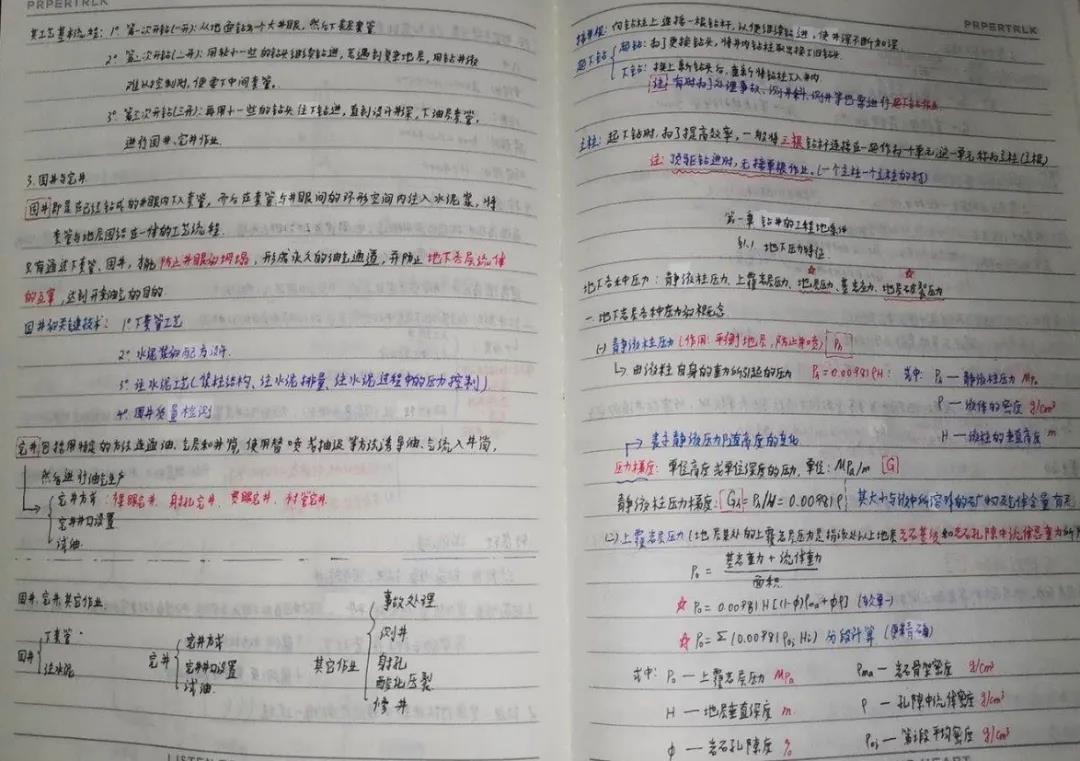 PRPERTRLK
其工艺基本流程: 1° 第一次开钻(一开): 从地面钻一个大井眼, 然后下表层套管
2° 第二次开钻(二开): 用较小一些的钻头继续钻进, 若遇到复杂地层, 用钻井液
难以控制时, 便要下中间套管.
3° 第三次开钻(三开): 再用小一些的钻头往下钻进, 直到设计井深, 下油层套管,
进行固井、完井作业.
3. 固井与完井
固井 即是在已经钻成的井眼内下入套管, 而后在套管与井眼间的环形空间内注入水泥浆, 将
套管与地层固结在一体的工艺流程.
只有通过下套管、固井, 才能防止井眼的坍塌, 形成永久的油气通道, 并防止地下各层流体
的互窜, 达到开采油气的目的
固井的关键技术: 1° 下套管工艺
2° 水泥浆的配方设计.
3° 注水泥工艺(浆柱结构、注水泥排量、注水泥过程中的压力控制)
4° 固井质量检测
完井 包括用特定的方法连通油、气层和井筒, 使用替喷或抽汲等方法诱导油、气流入井筒,
然后进行油气生产
完井方式: 裸眼完井、射孔完井、贯眼完井、衬管完井.
完井井口设置
试油.
固井、完井、其它作业.
固井 下套管.
注水泥
完井 完井方式
完井井口设置
试油.
其它作业 事故处理
测井
射孔
酸化压裂
修井
PRPERTRLK
接单根: 向钻柱上连接一根钻杆, 以便继续钻进, 使井深不断加深.
起下钻 起钻: 为了更换钻头, 将井内钻柱取出换下旧钻头.
下钻: 换上新钻头后, 重新将钻柱下入井内
注: 有时为了处理事故、测井斜、测井等也需进行起下钻作业.
立柱: 起下钻时, 为了提高效率, 一般将三根钻杆连接在一起作为一个单元, 这一单元称为立柱(立根)
注: 顶驱钻进时, 无接单根作业。(一个立柱一个立柱的打)
第一章 钻井的工程地质条件
§1.1 地下压力特征.
地下各种压力: 静液柱压力、上覆岩层压力、地层压力、基岩应力、地层破裂压力
一. 地下各层各种压力的概念
(一) 静液柱压力(作用: 平衡地层, 防止井喷) [Ph]
↳ 由液柱自身的重力所引起的压力 Ph = 0.00981ρH: 式中: Ph — 静液柱压力 MPa
ρ — 液体的密度 g/cm³
H — 液柱的垂直高度 m
→ 表示静液压力随高度的变化
压力梯度: 单位高度或单位深度的压力, 单位: MPa/m [G]
静液柱压力梯度: [Gh] = Ph/H = 0.00981ρ 其大小与液中所溶解的矿物及气体含量有关
(2) 上覆岩层压力(地层某处的上覆岩层压力是指该处以上地层岩石基质和岩石孔隙中流体总重力所
Po = 基岩重力 + 流体重力 / 面积
☆ Po = 0.00981H[(1-ϕ)ρma+ϕρ] (较单一)
☆ Po = Σ(0.00981ρoi Hi) 分段计算 (更精确)
式中: Po — 上覆岩层压力 MPa ρma — 岩石骨架密度 g/cm³
H — 地层垂直深度 m. ρ — 孔隙中流体密度 g/cm³
ϕ — 岩石孔隙度 % ρoi — 第i段平均密度 g/cm³